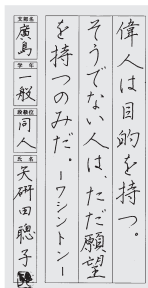 偉人は目的を持つ。
そうでない人は、ただ願望
を持つのみだ。ーワシントンー
支部名
廣島
学年
一般
段級位
同人
氏名
矢研田聰子